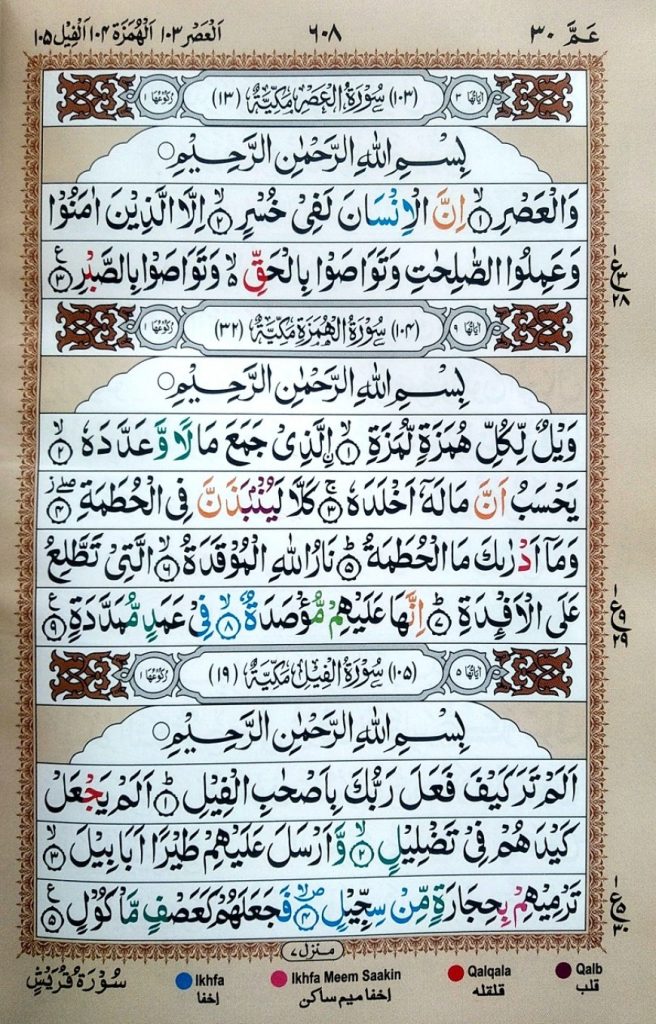 عَمَّ ٣٠
٦٠٨
اَلْعَصْر ١٠٣ اَلْهُمَزَة ١٠٤ اَلْفِيْل ١٠٥
اٰيَاتُهَا ٣ (١٠٣) سُوْرَةُ الْعَصْرِ مَكِّيَّةٌ (١٣) رُكُوْعُهَا ١
بِسْمِ اللّٰهِ الرَّحْمٰنِ الرَّحِيْمِ
وَالْعَصْرِ ۙ‏﴿١﴾ اِنَّ الْاِنْسَانَ لَفِىْ خُسْرٍ ۙ‏﴿٢﴾ اِلَّا الَّذِيْنَ اٰمَنُوْا
وَعَمِلُوا الصّٰلِحٰتِ وَتَوَاصَوْا بِالْحَقِّ ۙ وَتَوَاصَوْا بِالصَّبْرِ ﴿٣﴾ ع
ع ٣ ٢٨
اٰيَاتُهَا ٩ (١٠٤) سُوْرَةُ الْهُمَزَةِ مَكِّيَّةٌ (٣٢) رُكُوْعُهَا ١
بِسْمِ اللّٰهِ الرَّحْمٰنِ الرَّحِيْمِ
وَيْلٌ لِّكُلِّ هُمَزَةٍ لُّمَزَةِ ۙ‏﴿١﴾ اۨلَّذِىْ جَمَعَ مَالًا وَّعَدَّدَهٗ ۙ‏﴿٢﴾
يَحْسَبُ اَنَّ مَالَهٗۤ اَخْلَدَهٗ ۚ‏﴿٣﴾ كَلَّا لَيُنْۢبَذَنَّ فِى الْحُطَمَةِ ۖ‏﴿٤﴾
وَمَاۤ اَدْرٰٮكَ مَا الْحُطَمَةُ ؕ‏﴿٥﴾ نَارُ اللّٰهِ الْمُوْقَدَةُ ۙ‏﴿٦﴾ الَّتِىْ تَطَّلِعُ
عَلَى الْاَفْـِٕدَةِ ؕ‏﴿٧﴾ اِنَّهَا عَلَيْهِمْ مُّؤْصَدَةٌ ۙ‏﴿٨﴾ فِىْ عَمَدٍ مُّمَدَّدَةٍ ﴿٩﴾ ع
ع ٩ ٢٩
اٰيَاتُهَا ٥ (١٠٥) سُوْرَةُ الْفِيْلِ مَكِّيَّةٌ (١٩) رُكُوْعُهَا ١
بِسْمِ اللّٰهِ الرَّحْمٰنِ الرَّحِيْمِ
اَلَمْ تَرَ كَيْفَ فَعَلَ رَبُّكَ بِاَصْحٰبِ الْفِيْلِ ؕ‏﴿١﴾ اَلَمْ يَجْعَلْ
كَيْدَهُمْ فِىْ تَضْلِيْلٍ ۙ‏﴿٢﴾ وَّاَرْسَلَ عَلَيْهِمْ طَيْرًا اَبَابِيْلَ ۙ‏﴿٣﴾
تَرْمِيْهِمْ بِحِجَارَةٍ مِّنْ سِجِّيْلٍ ۙ‏﴿٤﴾ فَجَعَلَهُمْ كَعَصْفٍ مَّاْكُوْلٍ ﴿٥﴾ ع
ع ٥ ٣٠
منزل ٧
Qalb قلب
Qalqala قلقله
Ikhfa Meem Saakin اخفا میم ساکن
Ikhfa اخفا
سُوْرَةُ قُرَيْشٍ